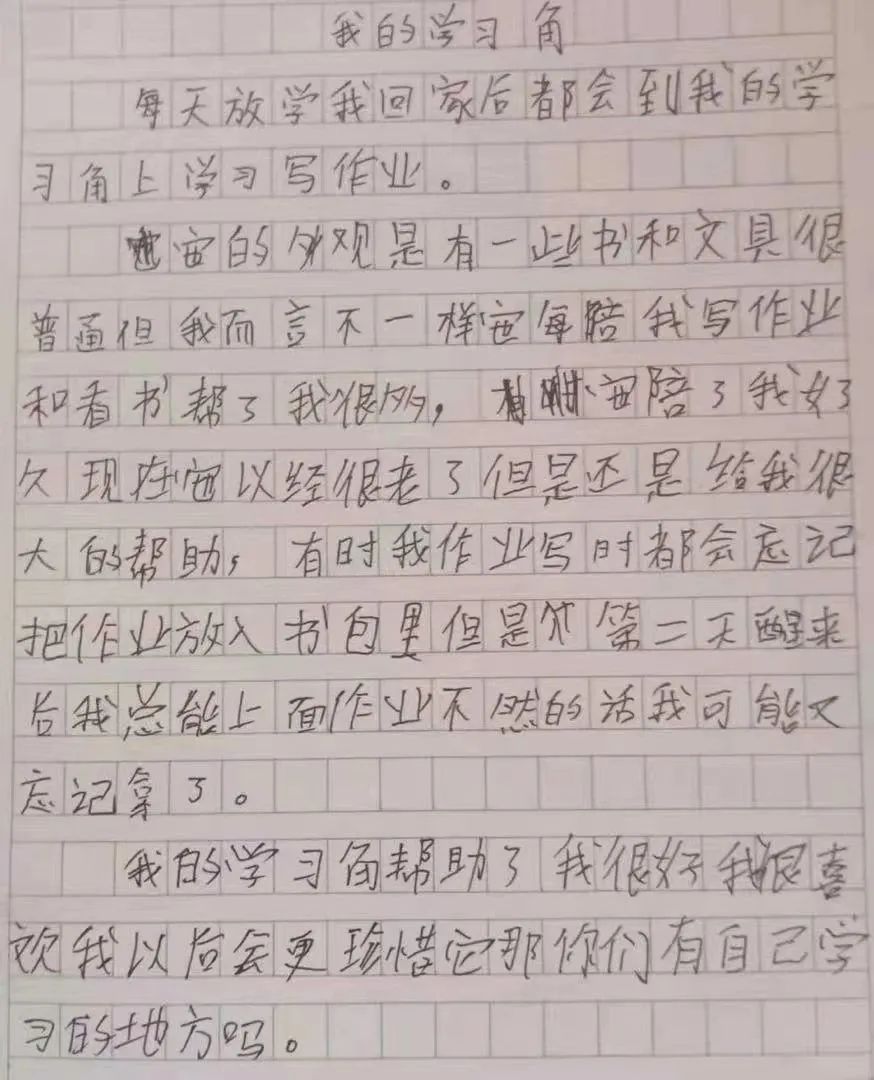 我的学习角
每天放学我回家后都会到我的学
习角上学习写作业。
它的外观是有一些书和文具很
普通但我而言不一样它每陪我写作业
和看书帮了我很多，它陪了我好了
久现在它以经很老了但是还是给我很
大的帮助，有时我作业写时都会忘记
把作业放入书包里但是第二天醒来
后我总能上面作业不然的话我可能又
忘记拿了。
我的学习角帮助了我很好我很喜
欢我以后会更珍惜它那你们有自己学
习的地方吗。